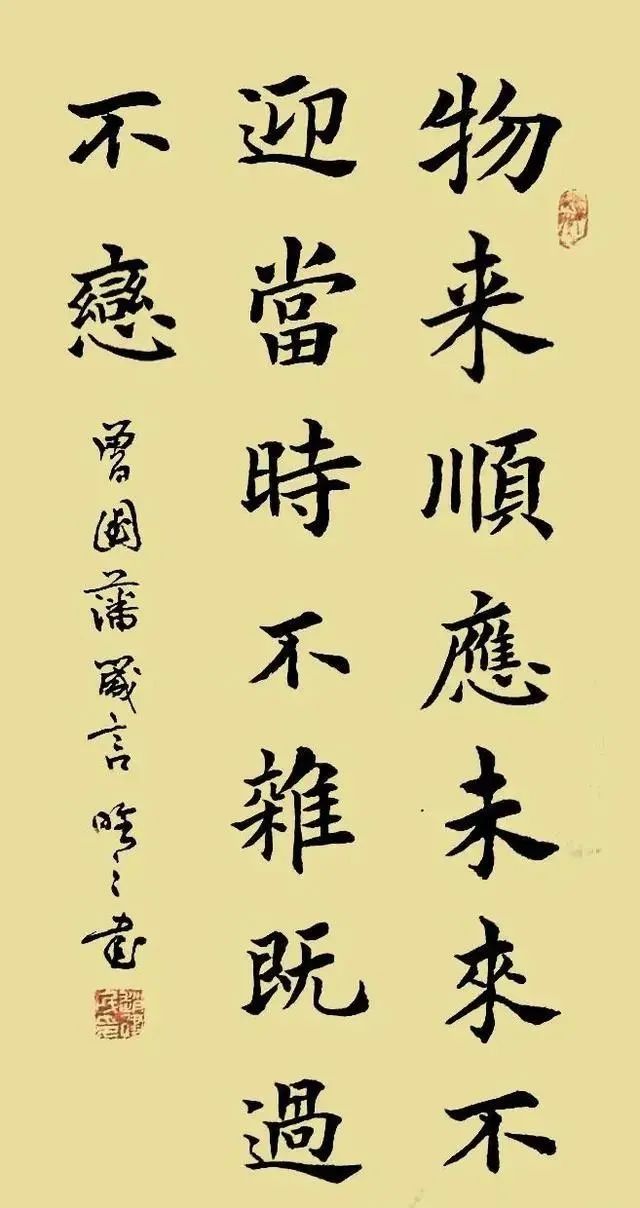 物来順應未來不
迎當時不雜既過
不戀
曾國藩箴言 書